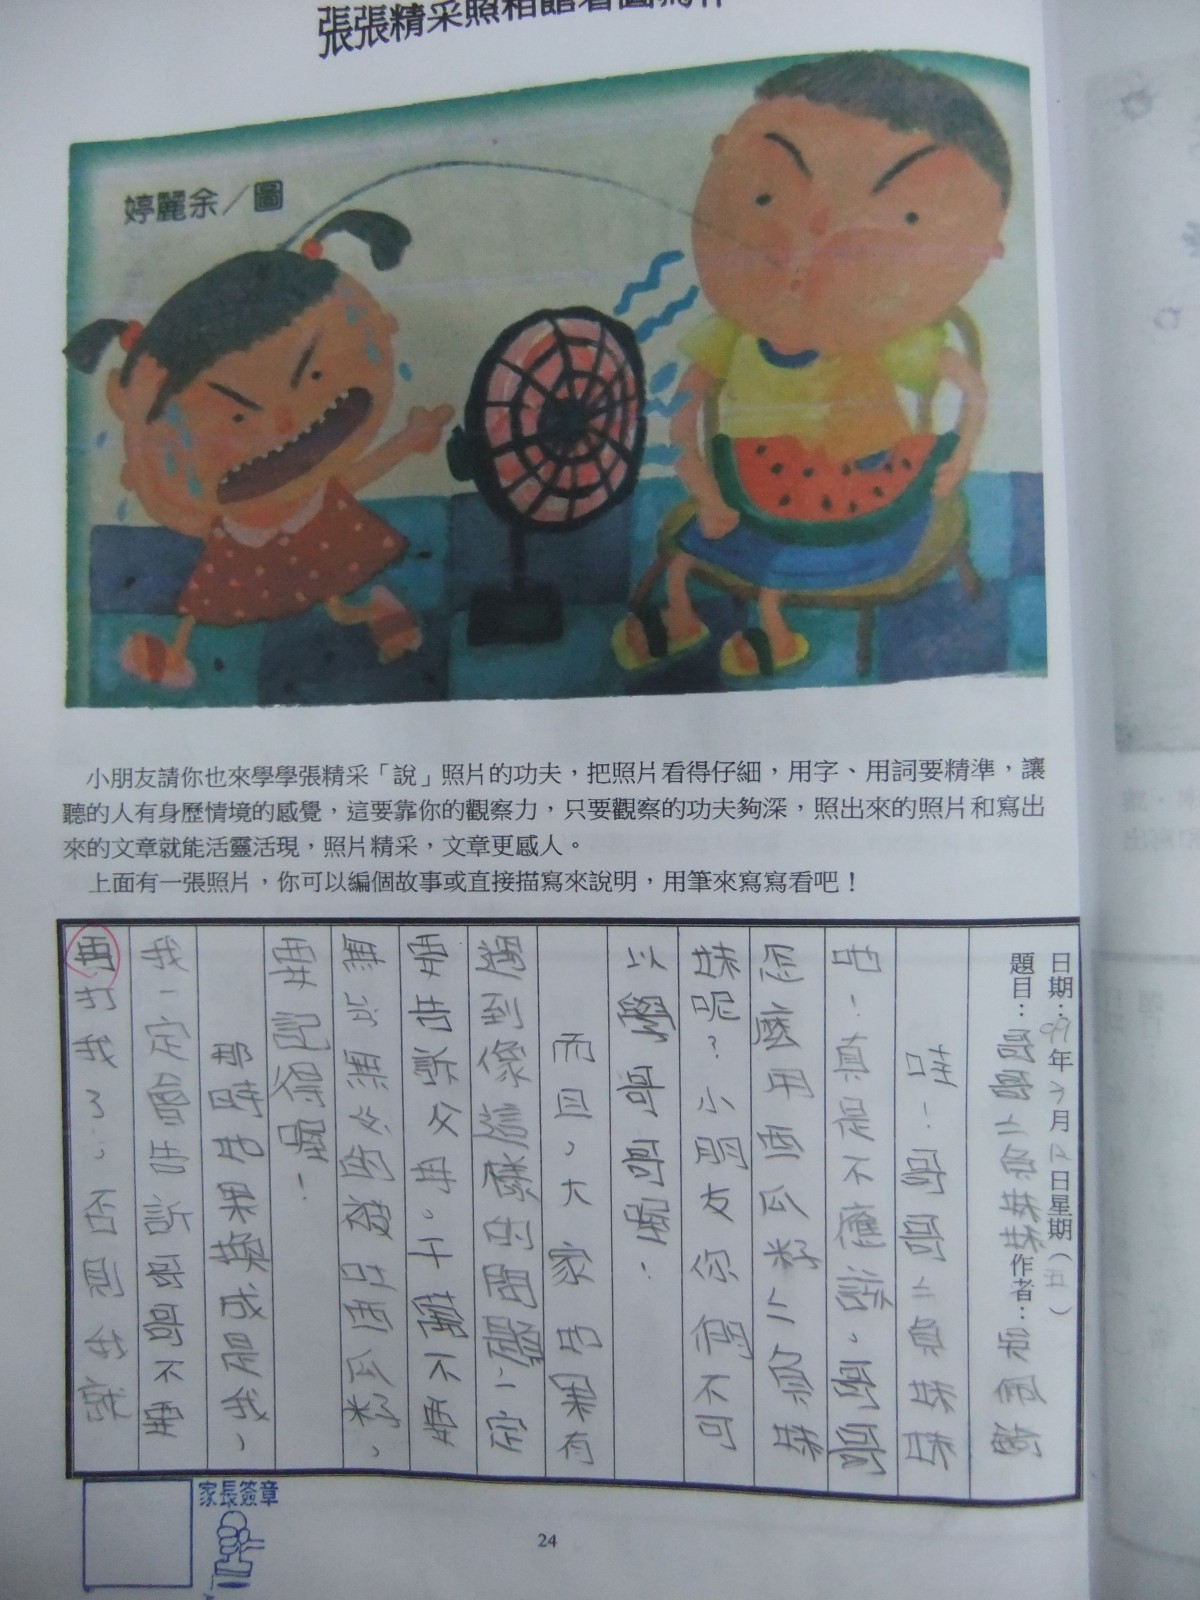 張張精采照相館看圖寫作
婷麗余／圖
小朋友請你也來學學張精采「說」照片的功夫，把照片看得仔細，用字、用詞要精準，讓
聽的人有身歷情境的感覺，這要靠你的觀察力，只要觀察的功夫夠深，照出來的照片和寫出
來的文章就能活靈活現，照片精采，文章更感人。
上面有一張照片，你可以編個故事或直接描寫來說明，用筆來寫寫看吧！
日期：99年3月12日星期（五）
題目：哥哥ㄑ負妹妹作者：吳佩
哇！哥哥ㄑ負妹妹
吔！真是不應該。哥哥
怎麼用西瓜籽ㄑ負妹
妹呢？小朋友你們不可
以學哥哥喔！
而且，大家如果有
遇到像這樣的問題，一定
要告訴父母。千萬不要
無
要記得喔！
那時如果換成是我，
我一定會告訴哥哥不要
再打我了，否則我就
家長簽章
24